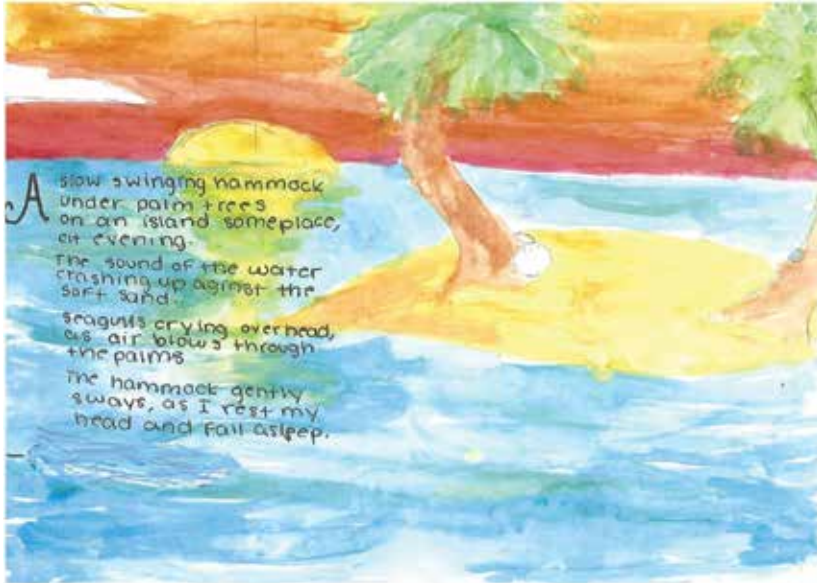 A slow swinging hammock
under palm trees
on an island someplace,
at evening.
The sound of the water
crashing up against the
soft sand.
seagulls crying overhead,
as air blows through
the palms
The hammock gently
sways, as I rest my
head and fall asleep.